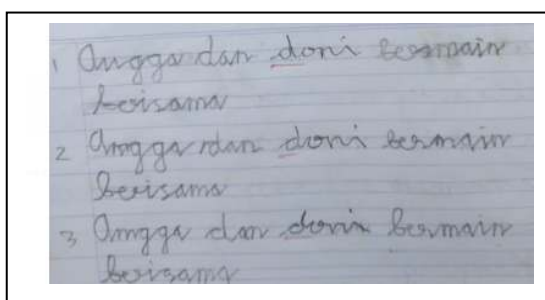 1 Angga dan doni bermain
bersama
2 Angga dan doni bermain
bersama
3 Angga dan doni bermain
bersama